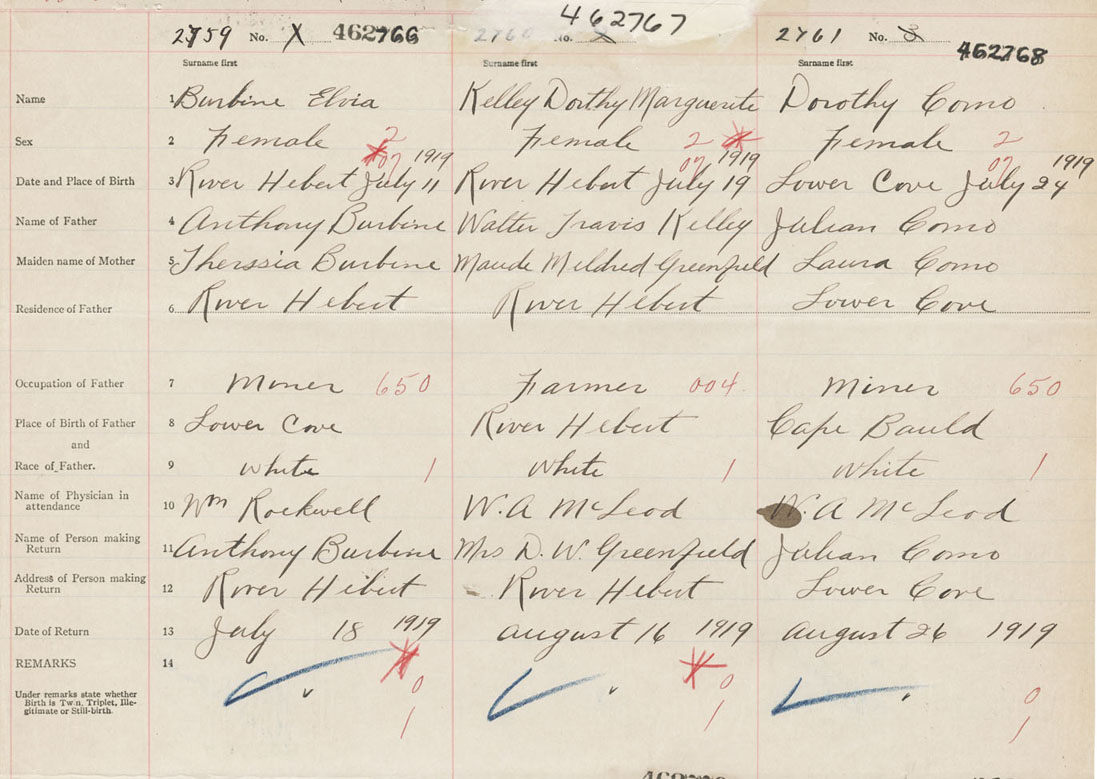 462767
2759 No. X 462766 2760 No. X 2761 No. 3 462768
Surname first Surname first Surname first
Name 1 Burbine Elvia Kelley Dorthy Marguerite Dorothy Como
Sex 2 Female 2 Female 2 Female 2
07 1919 07 1919 07 1919
Date and Place of Birth 3 River Hebert July 11 River Hebert July 19 Lower Cove July 24
Name of Father 4 Anthony Burbine Walter Travis Kelley Julian Como
Maiden name of Mother 5 Therssia Burbine Maude Mildred Greenfield Laura Como
Residence of Father 6 River Hebert River Hebert Lower Cove
Occupation of Father 7 Miner 650 Farmer 004 Miner 650
Place of Birth of Father 8 Lower Cove River Hebert Cape Bauld
and
Race of Father. 9 White 1 White 1 White 1
Name of Physician in
attendance 10 Wm Rockwell W. A McLeod W. A McLeod
Name of Person making
Return 11 Anthony Burbine Mrs D. W. Greenfield Julian Como
Address of Person making
Return 12 River Hebert River Hebert Lower Cove
Date of Return 13 July 18 1919 August 16 1919 August 26 1919
REMARKS 14
0 0 0
Under remarks state whether
Birth is Twin, Triplet, Ille-
gitimate or Still-birth.
1 1 1